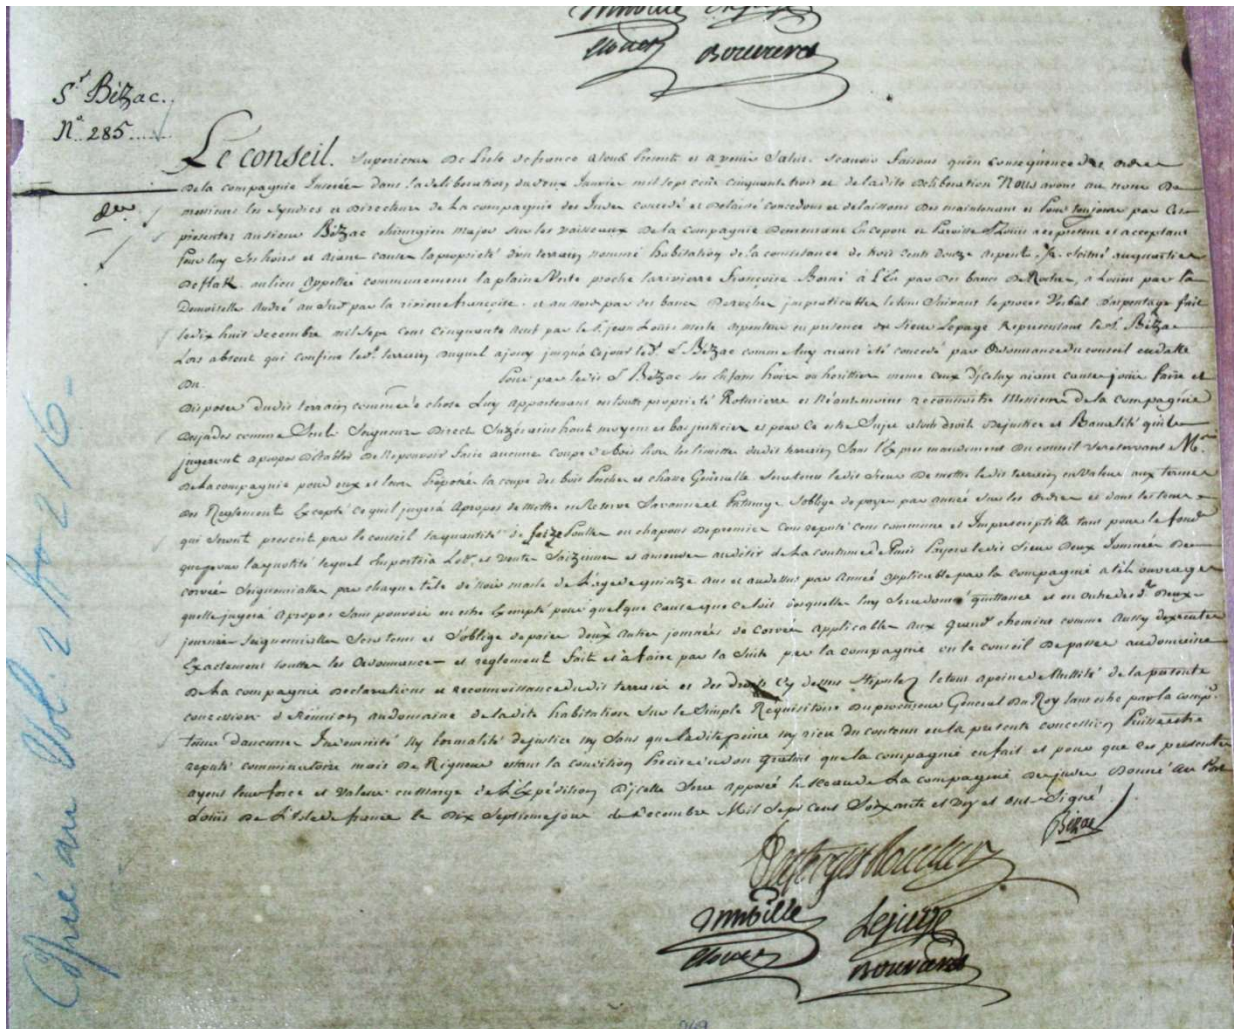 Bouvard
Sr. Bizac.
No. 285
Le Conseil. Superieur De Lisle de france a tous presents et a venir Salut. Scavoir faisons qu'en consequence des ordres
De la compagnie Inserés dans la deliberation du deux Janvier mil sept cent cinquante trois et de ladite deliberation Nous avons au nom De
messieurs les Syndics et Directeurs de la compagnie des Indes concedé et delaissé concedons et delaissons Des maintenant et pour toujours par Ces
presentes au sieur Bizac chirurgien major sur les vaisseaux De la Compagnie Demeurant en ce port et Paroisse St Louis a ce present et acceptant
pour luy Ses hoirs et ayans cause la proprieté d'un terrain nommé habitation de la consistance de trois cent douze arpents situé au quartier
De flak au lieu appellé communement la plaine Verte proche la riviere Françoise Borné à L'Est par Des bancs De Roches, a L'ouest par la
Demoiselle André au sud par la riviere françoise et au nord par des bancs De roches impraticables le tout Suivant le procès Verbal D'arpentage fait
le dix huit decembre mil sept cent cinquante neuf par le Sr. jean Louis arpenteur en presence du Sieur Lepage Representant le Sr. Bizac
Lors absent qui confine led. terrain auquel a jouy jusqu'a ce jour led. S. Bizac comme luy ayant été concedé par Ordonnance du conseil en datte
Du. Pour par ledit S. Bizac ses Enfans hoirs ou heritiers meme ceux D'iceluy aiant cause jouir faire et
Disposer dudit terrain comme de chose Luy appartenant en toute proprieté Roturiere et Neantmoins reconnoitre Messieurs de la compagnie
Desindes comme Seuls Seigneurs Direct Suzerains haut moyens et bas justicier et pour Ce estre Sujet a tous droits de justice et Banalité qu'ils
jugeront a propos D'etablir De Ne pouvoir faire aucune coupe de bois hors les limittes dudit terrain Sans l'Expres mandement Du conseil se reservant Mrs.
De la compagnie pour eux et leurs Preposés la coupe des bois Peches et chasse Generalle Sera tenu ledit Sieur De mettre ledit terrain en Valeur aux termes
Des Reglements Excepté ce quil jugera Apropos de mettre en Reserve Savannes et Paturage S'oblige de payer par année Sur les Ordres et dans les tems
qui seront prescrit par le conseil la quantité de seize Poulles ou chapons De premier Cens reputé cens commune et Imprescriptible tant pour le fond
que pour la quotité lequel Emportera Lods et ventes Saizinnes et amendes au desir de la Coutume de Paris Payera ledit Sieur Deux Journées De
corvée Seigneurialle par chaque tête de Noir masle de L'age de quinze ans et audessus par Année applicable par la compagnie a tels ouvrages
quelle jugera Apropos Sans pouvoir en estre Exempté pour quelque cause que ce soit desquelles luy Sera donné quittance et en outre des d. Deux
journées Seigneurialles Sera tenu et S'oblige de faire deux autres journées de Corvée applicable aux grands chemins comme Aussy d'executer
Exactement toutes les Ordonnances et reglements fait et à faire par la Suite par la compagnie ou le conseil De passer au domaine
De La compagnie Declarations et reconnoissance dudit terrain et des droits Cy dessus Stipulez le tout apeine de Nullité de la presente
concession et Reunion au domaine de ladite habitation Sur le Simple Requisitoire Du procureur General Du Roy Sans etre par la comp.
tenue d'aucunes Indemnité Ny formalité de justice ny Sans que ladite peine ny rien du contenu en la presente concession Puisse estre
reputé comminatoire mais De Rigueur estant la condition Precise du don gratuit que la compagnie en fait et pour que ces presentes
ayent leur force et Valeur en marge de L'Expedition D'icelle Sera apposé le sceau de La compagnie Desindes Donné Au Port
Louis De L'Isle de france le Dix Septieme jour de Decembre Mil Sept Cens Soixante et Signé
Bizac
Desforges Boucher
Lejuge
Bouvard
Copié au Vol. 2 No 216